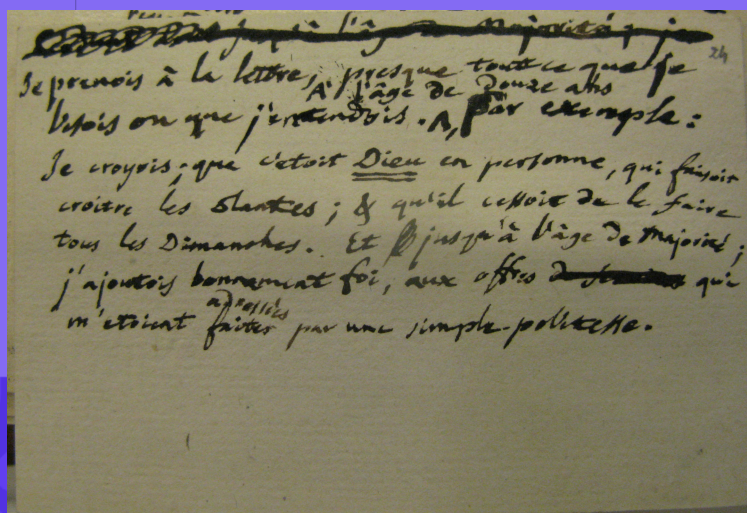 jusqu'à l'âge de Majorité ; je
24
Je prenois à la lettre, presque tout ce que je
A l'âge de douze ans
lisois ou que j'entendois. Λ, par exemple :
Je croyois ; que c'étoit Dieu en personne, qui faisoit
croitre les Plantes ; & qu'il cessoit de le faire
tous les Dimanches. Et jusqu'à l'âge de Majorité ;
j'ajoutois bonnement foi, aux offres qui
adressées
m'etoient faites par une simple politesse.